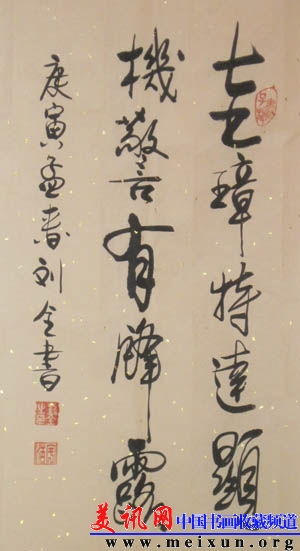 圭璋特達顯
機警有鋒露
庚寅孟春刘全書
美讯网 中国书画收藏频道
www.meixun.org